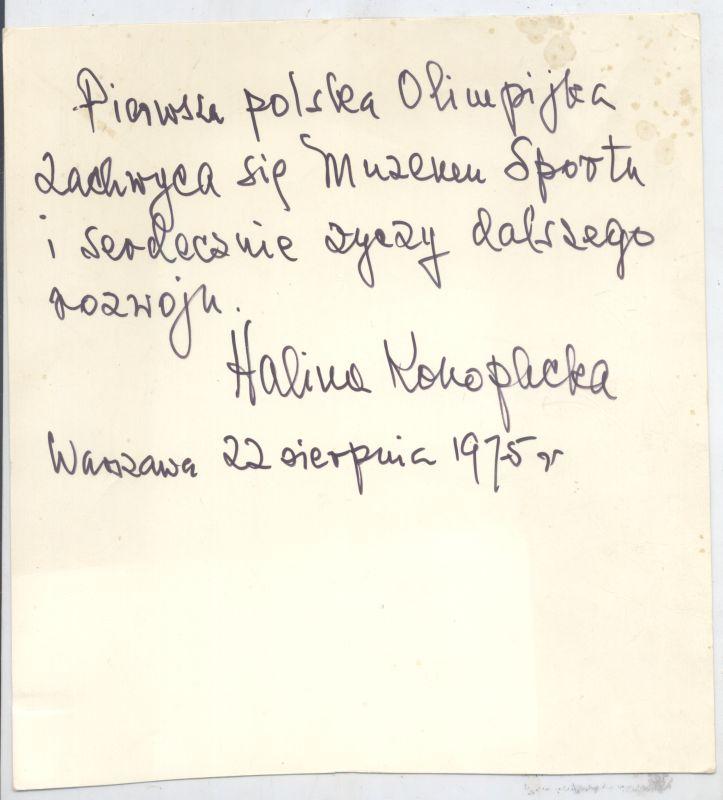 Pierwsza polska Olimpijka
zachwyca się Muzeum Sportu
i serdecznie życzy dalszego
rozwoju.
Halina Konopacka
Warszawa 22 sierpnia 1975 r